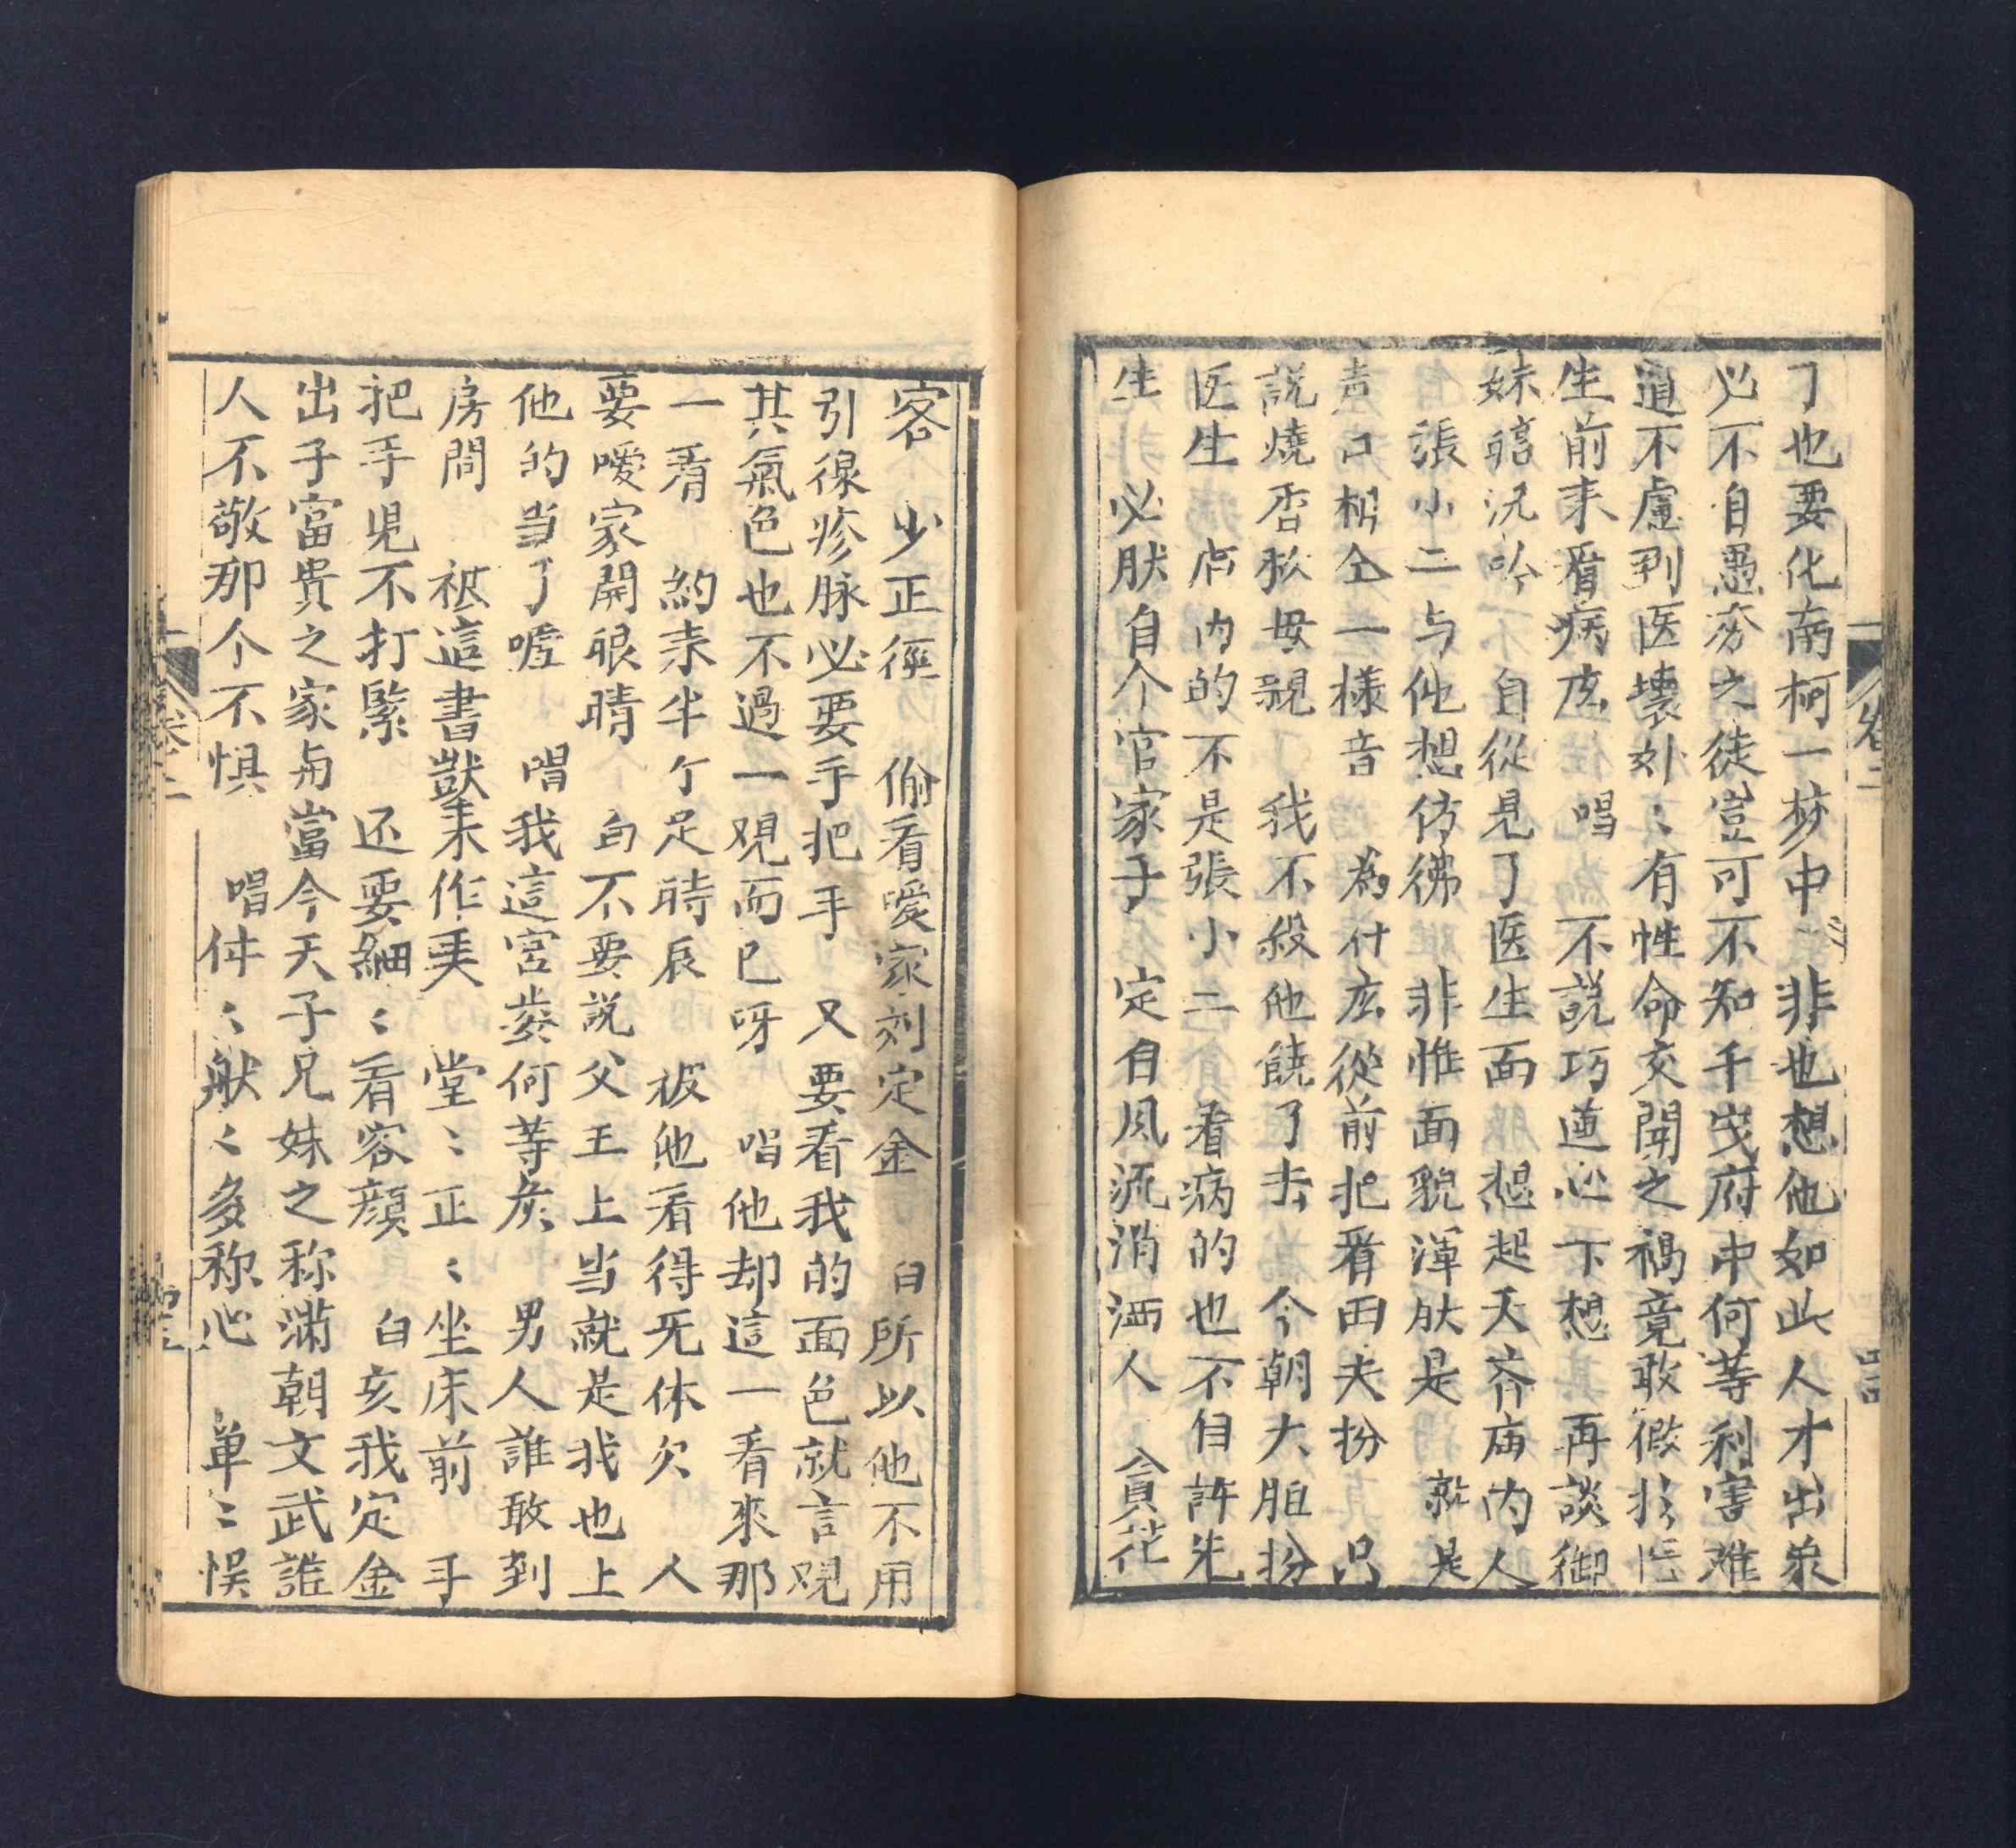 了也要化南柯一梦中 非也想他如此人才出衆
必不自愚夯之徒豈可不知千岁府中何等利害难
道不慮到医壞处〻有性命交関之禍竟敢假扮医
生前来看病庅 唱 不説巧道心下想 再談御
妹暗沉吟 自從見了医生面 想起天齐庙内人
張小二与他想仿彿 非惟面貌渾肰是 就是
声口相仝一樣音 為什庅從前把看田夫扮 只
説燒香欤母親 我不殺他饒了去 今朝大胆扮
医生 店内的不是張小二 看病的也不自許先
生 必肰自个官家子 定自風流消洒人 貪花
客 少正徑 偷看嗳家刘定金 白所以他不用
引線疹脉必要手把手 又要看我的面色就言观
其氣色也不過一观而已呀 唱他却這一看來那
一看 約来半个足時辰 被他看得旡体欠 人
要嗳家開眼晴 白不要説父王上当就是我也上
他的当了嘘 唱我這宮娄何等矦 男人誰敢到
房間 被這書獃来作美 堂〻正〻坐床前 手
把手児不打緊 还要細〻看容顔 白亥我定金
出于富貴之家与當今天子兄妹之称滿朝文武誰
人不敬那个不惧 唱件〻般〻多称心 单〻悮
卷二
卷二